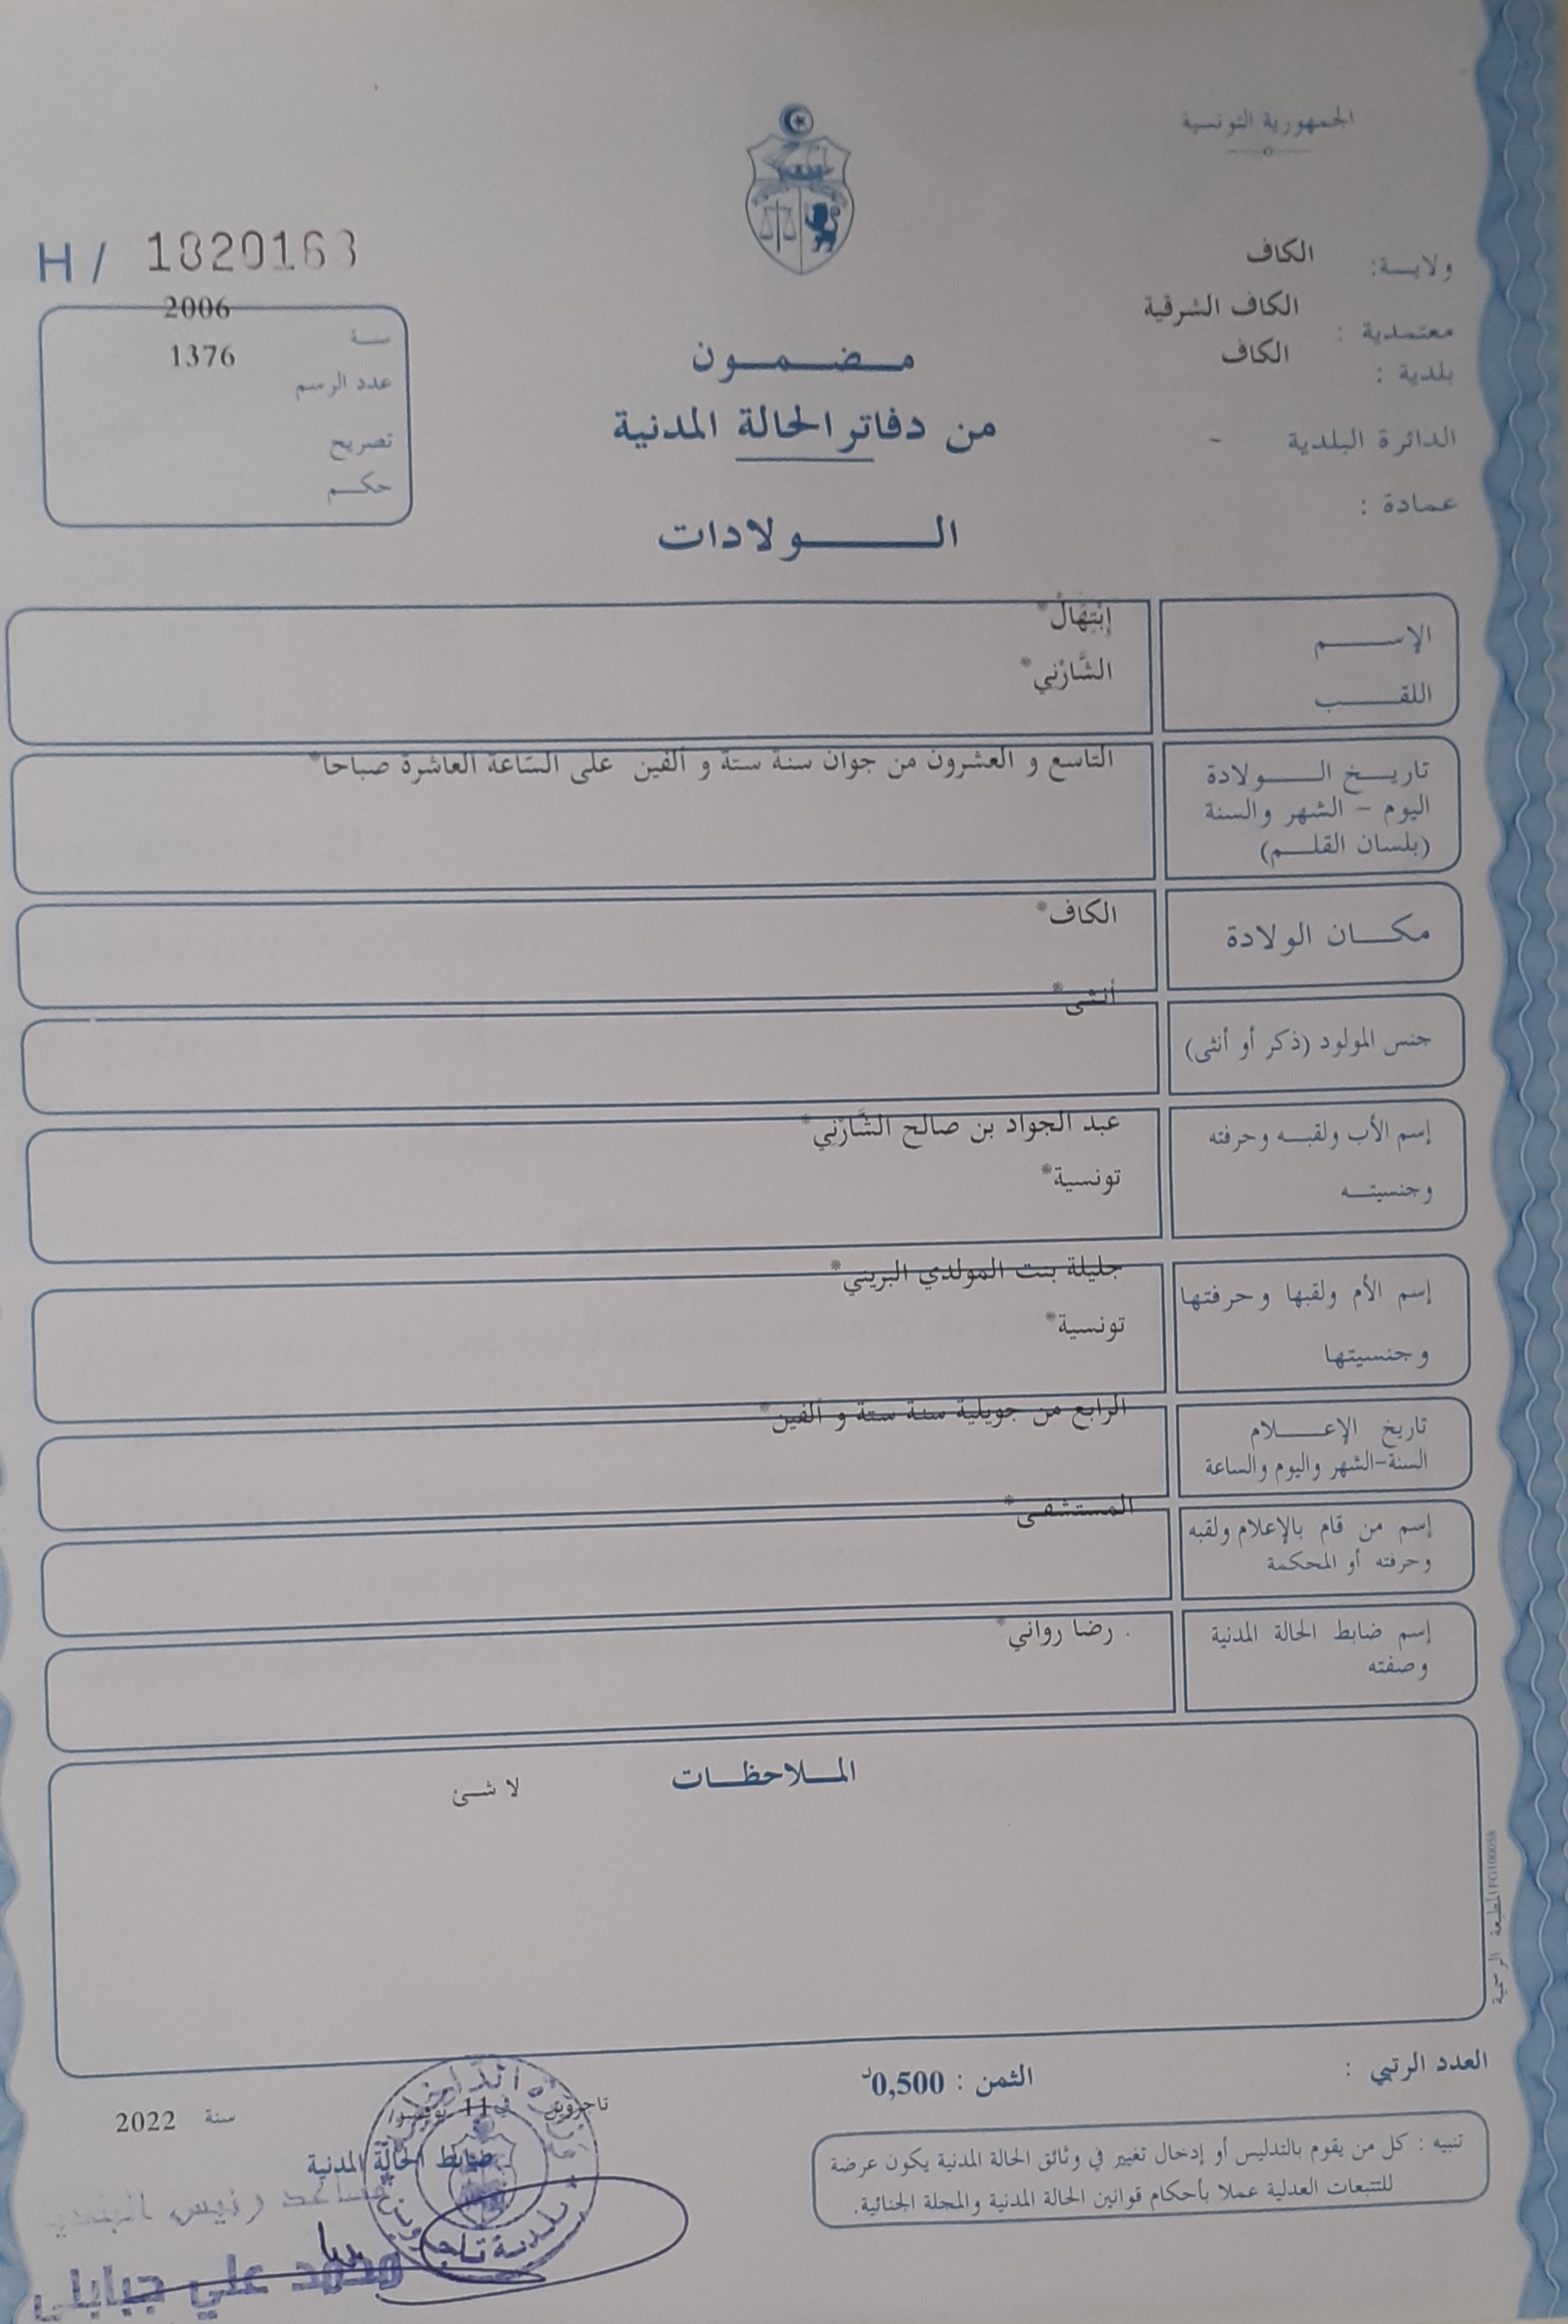 الجمهورية التونسية
ولايـــة: الكاف
معتمدية : الكاف الشرقية
بلدية : الكاف
الدائرة البلدية ~
عمادة :
H / 1820163
2006
سنــة
1376
عدد الرسم
تصريح
حكــم
مـــضـــمـــون
من دفاتر الحالة المدنية
الـــــــولادات
الإســـــم إِبْتِهَالْ*
اللقـــــب الشَّارْنِي*
تاريــــخ الـــــولادة التاسع و العشرون من جوان سنة ستة و ألفين على السّاعة العاشرة صباحا*
اليوم – الشهر والسنة
(بلسان القلـــم)
مكـــان الولادة الكاف*
جنس المولود (ذكر أو أنثى) أنثى*
إسم الأب ولقبـــه وحرفته عبد الجواد بن صالح الشَّارْنِي*
وجنسيتــه تونسية*
إسم الأم ولقبها وحرفتها جليلة بنت المولدي البريني*
وجنسيتها تونسية*
تاريخ الإعـــــلام الرابع من جويلية سنة ستة و ألفين*
السنة-الشهر واليوم والساعة
إسم من قام بالإعلام ولقبه المستشفى*
وحرفته أو المحكمة
إسم ضابط الحالة المدنية . رضا رواني*
وصفته
المـــلاحظـــات
لا شئ
المطبعة الرسمية PG100058
العدد الرتبي :
الثمن : 0,500د
تنبيه : كل من يقوم بالتدليس أو إدخال تغيير في وثائق الحالة المدنية يكون عرضة
للتتبعات العدلية عملا بأحكام قوانين الحالة المدنية والمجلة الجنائية.
تاجروين في 11 نوفمبر سنة 2022
ضابط الحالة المدنية
مساعد رئيس البلدية
محمد علي جبابلي
وزارة الداخلية
بلدية تاجروين